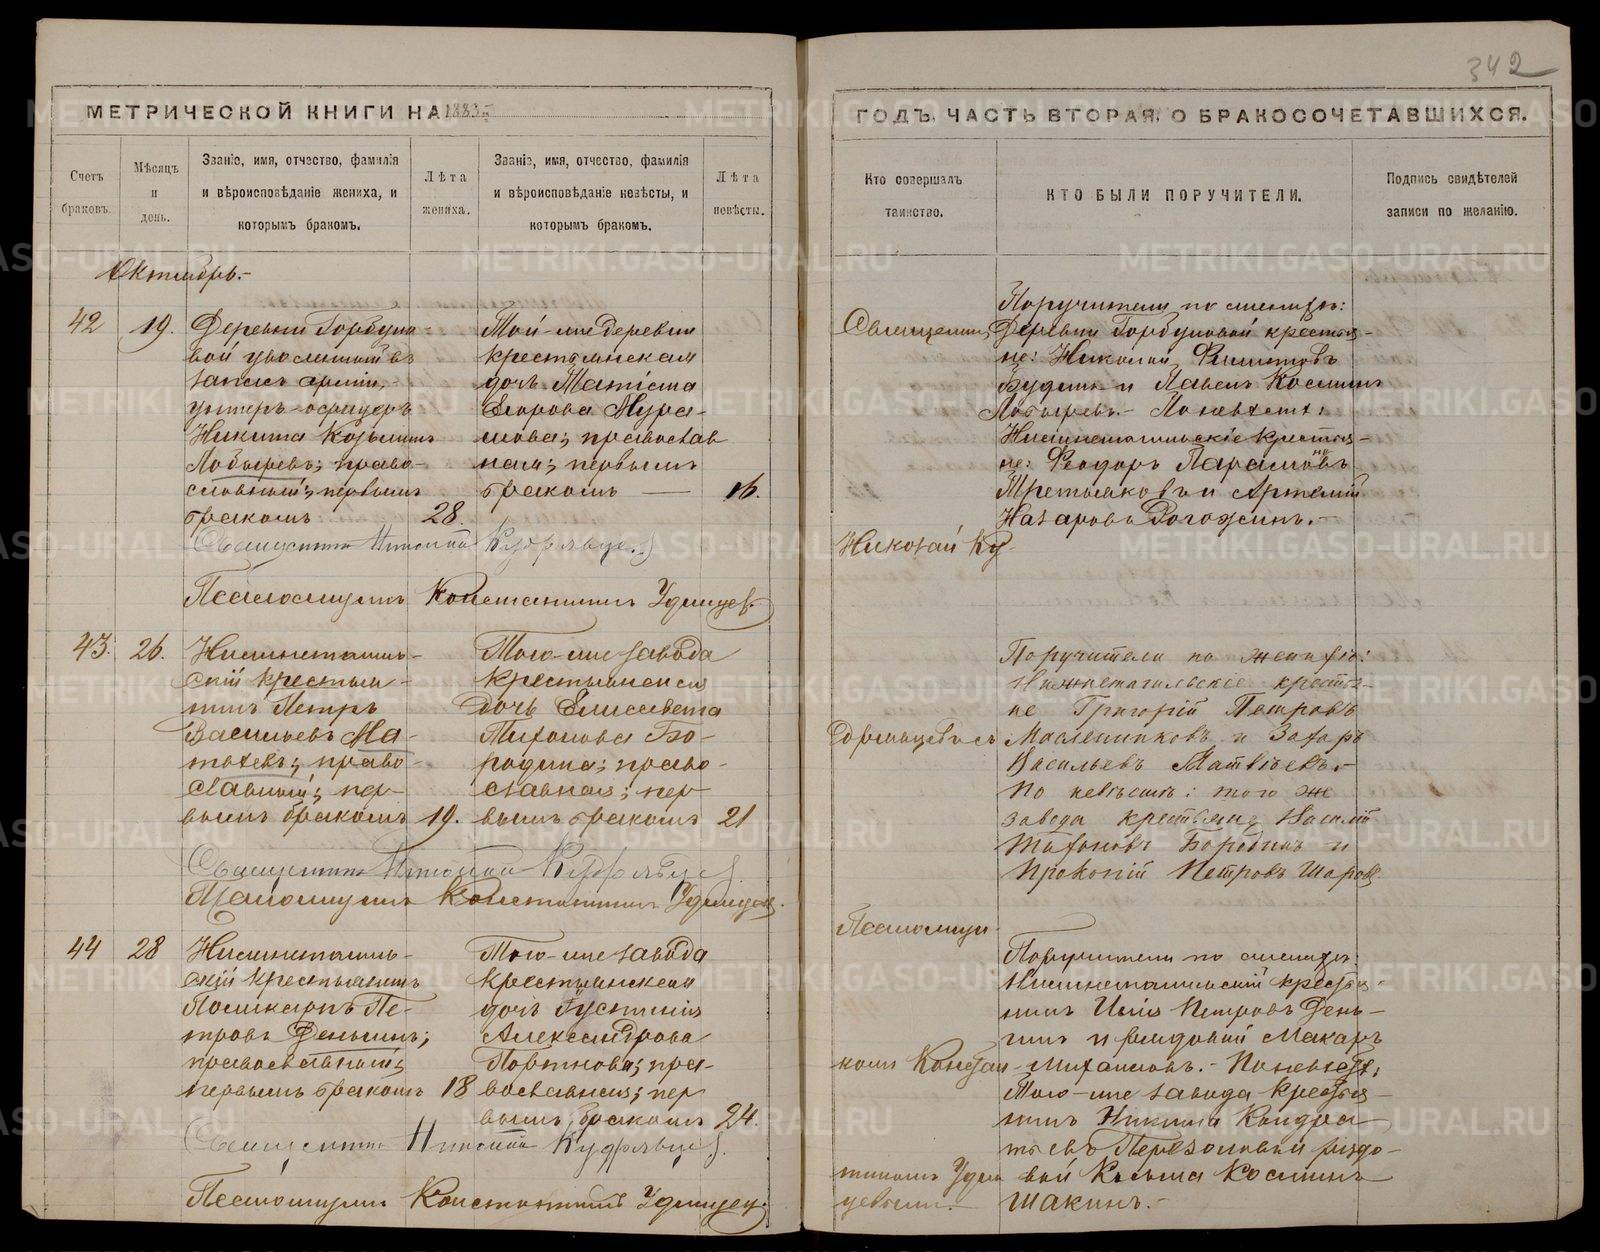 342
МЕТРИЧЕСКОЙ КНИГИ НА 1883
ГОДЪ, ЧАСТЬ ВТОРАЯ, О БРАКОСОЧЕТАВШИХСЯ.
Счетъ
браковъ.
Мѣсяцъ
и
день.
Званіе, имя, отчество, фамилія
и вѣроисповѣданіе жениха, и
которымъ бракомъ.
Лѣта
жениха.
Званіе, имя, отчество, фамилія
и вѣроисповѣданіе невѣсты, и
которымъ бракомъ.
Лѣта
невѣсты.
Кто совершалъ
таинство.
КТО БЫЛИ ПОРУЧИТЕЛИ.
Подпись свидѣтелей
записи по желанію.
Октябрь.-
42
19.
Деревни Горбуно-
вой уволенный въ
запасъ арміи,
унтеръ-офицеръ
Никита Козьминъ
Лобыревъ; право-
славный; первымъ
бракомъ
28.
Той-же деревни
крестьянская
дочь
Егорова Мура-
шова; православ
ная; первымъ
бракомъ —
16.
Священникъ
Николай Ку-
Поручители по женихѣ:
Деревни Горбуновой крестья-
не: Николай Филиповъ
и Павелъ Косминъ
Лобыревъ.- По невѣстѣ:
Нижнетагильскіе крестья-
не: Феодоръ Парамоновъ
Третьяковъ и Артемій
Назаровъ Рогожинъ.-
Священникъ Николай Кудрявце.
Псаломщикъ Константинъ Удинцев.
43.
26.
Нижнетагиль-
скій крестья-
нинъ Петръ
Васильевъ Ма-
твѣевъ; право-
славный; пер-
вымъ бракомъ
19.
Того-же завода
крестьянская
дочь Елисавета
Тихонова Бо-
родина; право-
славная; пер
вымъ бракомъ
21
дрявцевъ съ
Поручители по женихѣ:
Нижнетагильскіе крестья-
не Григорій Петровъ
Маслениковъ и Захаръ
Васильевъ Матвѣевъ.-
По невѣстѣ: того ж
завода крестьяне
Тихоновъ Бородинъ и
Прокопій Петровъ Шаровъ
Священникъ Николай Кудрявце.
Псаломщикъ Константинъ Удинцев.
44
28
Нижнетагиль-
скій крестьянинъ
Поликарпъ Пе-
тровъ Деньгинъ;
православный;
первымъ бракомъ
18
Того-же завода
крестьянская
дочь Іустинія
Александрова
Портнова; пра-
вославная; пер
вымъ бракомъ
24.
Псаломщи-
комъ Констан-
тиномъ Удин
цевымъ.-
Поручители по женихѣ:
Нижнетагильскій крестья-
нинъ Илія Петровъ День-
гинъ и рядовой Макаръ
Михаиловъ.- По невѣстѣ,
Того-же завода крестья-
нинъ Никита Кондра
тьевъ и рядо-
вой Козьма Косминъ
Шакинъ.-
Священникъ Николай Кудрявце.
Псаломщикъ Константинъ Удинцев.
METRIKI.GASO-URAL.RU